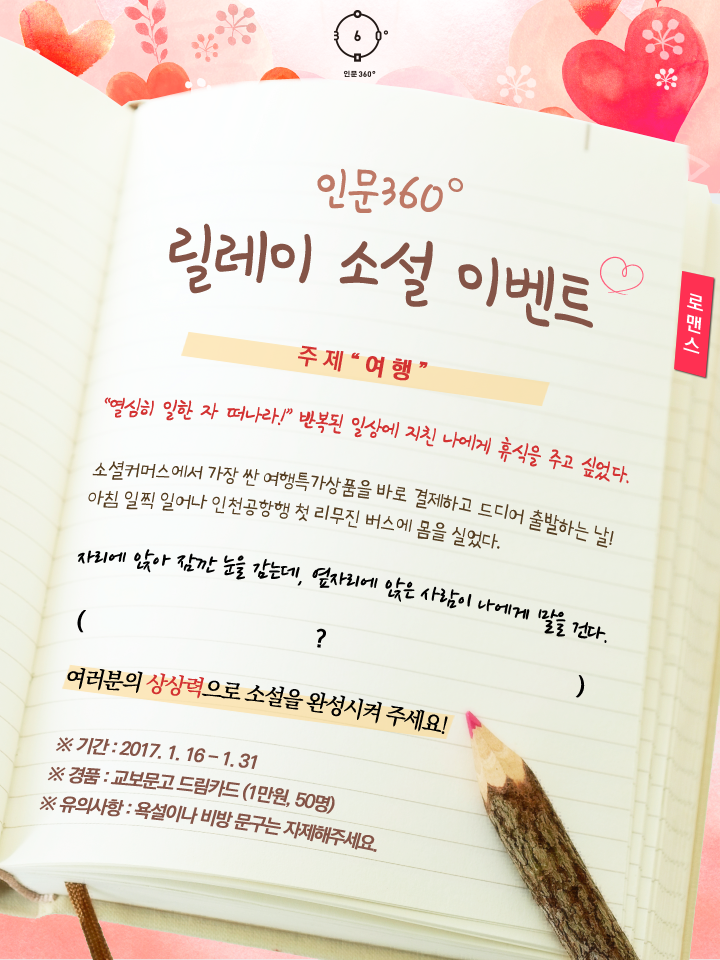 3 6 0°
인문360°
인문360°
릴레이 소설 이벤트
로맨스
주제 “여행”
“열심히 일한 자 떠나라!” 반복된 일상에 지친 나에게 휴식을 주고 싶었다.
소셜커머스에서 가장 싼 여행특가상품을 바로 결제하고 드디어 출발하는 날!
아침 일찍 일어나 인천공항행 첫 리무진 버스에 몸을 실었다.
자리에 앉아 잠깐 눈을 감는데, 옆자리에 앉은 사람이 나에게 말을 건다.
( ? )
여러분의 상상력으로 소설을 완성시켜 주세요!
※ 기간 : 2017. 1. 16 - 1. 31
※ 경품 : 교보문고 드림카드 (1만원, 50명)
※ 유의사항 : 욕설이나 비방 문구는 자제해주세요.